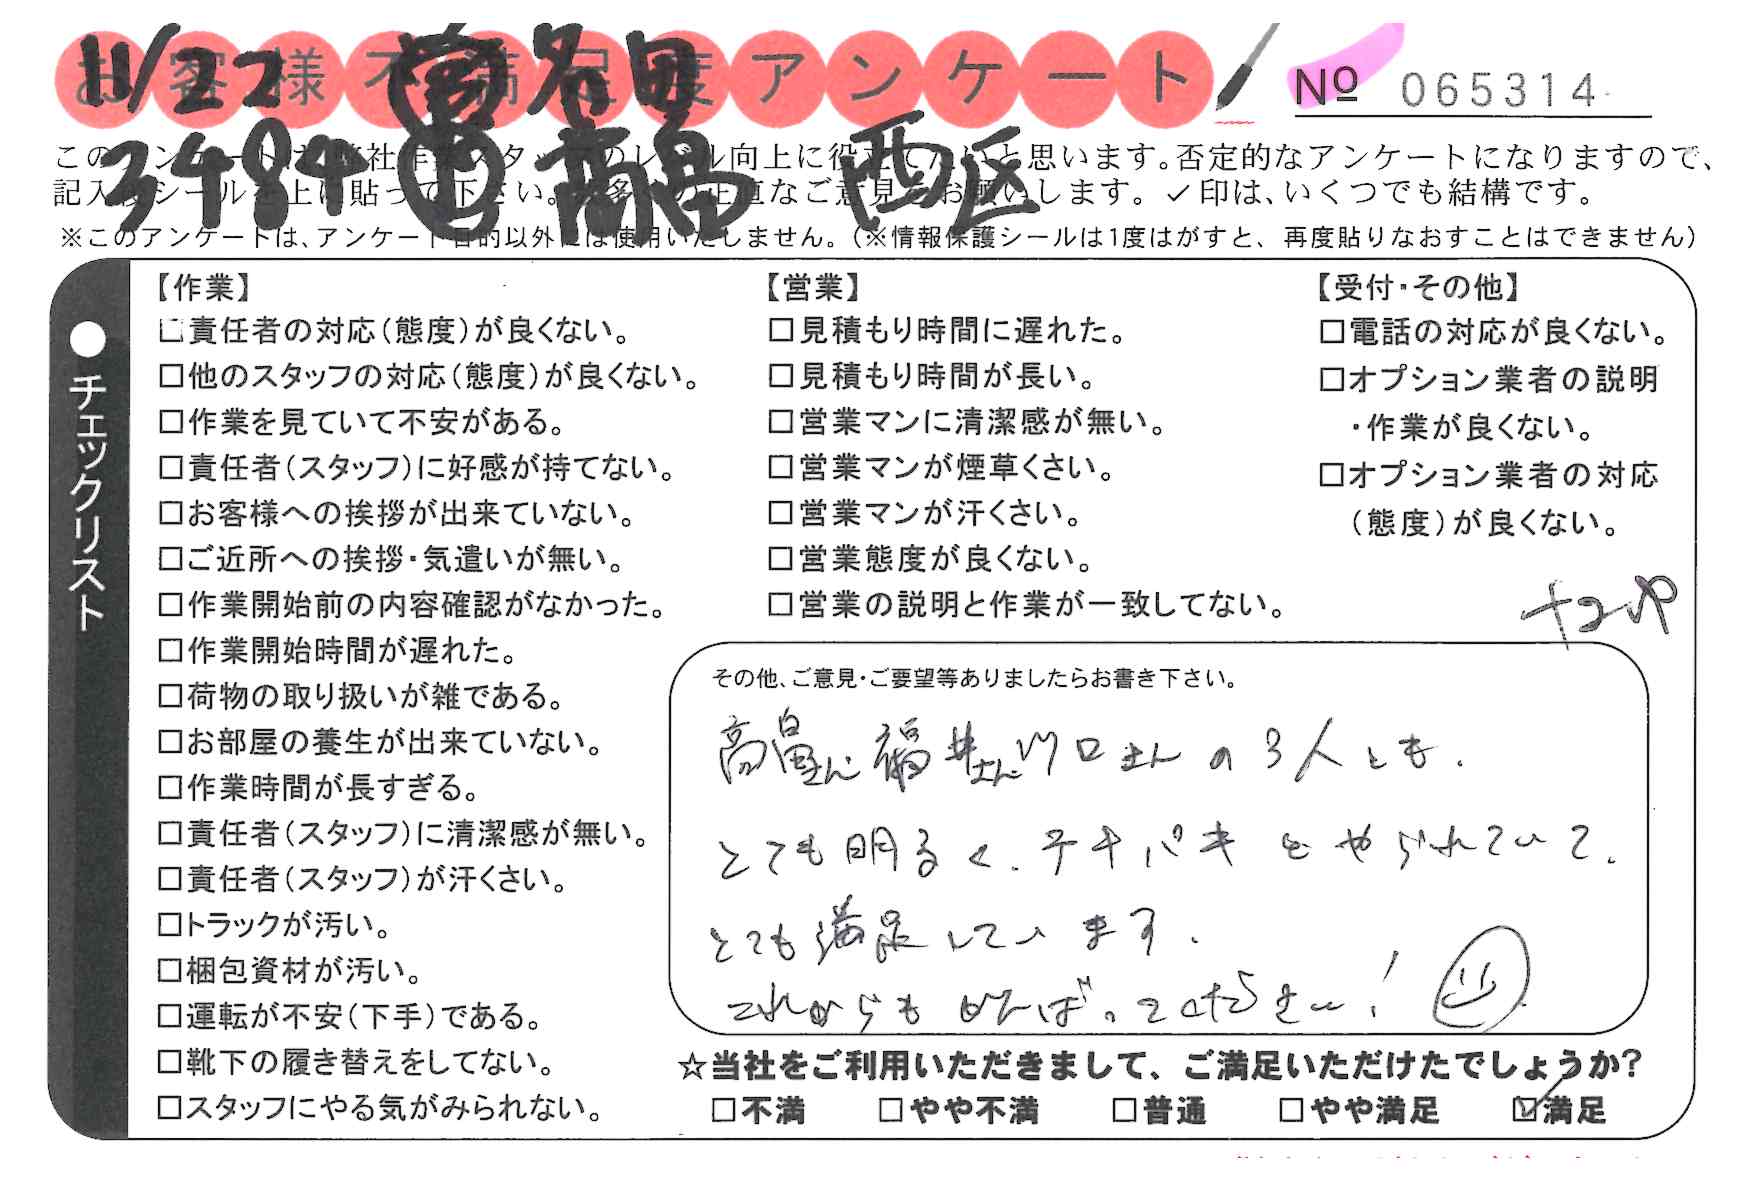 お客様不満足度アンケート
11/22 営 名田
3484 作 高畠 西区
No 065314
このアンケートは、弊社作業スタッフのレベル向上に役立てたいと思います。否定的なアンケートになりますので、
記入後シールを上に貼って下さい。数多くの正直なご意見をお願いします。✓印は、いくつでも結構です。
※このアンケートは、アンケート目的以外には使用いたしません。(※情報保護シールは1度はがすと、再度貼りなおすことはできません)
●チェックリスト
【作業】
□責任者の対応(態度)が良くない。
□他のスタッフの対応(態度)が良くない。
□作業を見ていて不安がある。
□責任者(スタッフ)に好感が持てない。
□お客様への挨拶が出来ていない。
□ご近所への挨拶・気遣いが無い。
□作業開始前の内容確認がなかった。
□作業開始時間が遅れた。
□荷物の取り扱いが雑である。
□お部屋の養生が出来ていない。
□作業時間が長すぎる。
□責任者(スタッフ)に清潔感が無い。
□責任者(スタッフ)が汗くさい。
□トラックが汚い。
□梱包資材が汚い。
□運転が不安(下手)である。
□靴下の履き替えをしてない。
□スタッフにやる気がみられない。
【営業】
□見積もり時間に遅れた。
□見積もり時間が長い。
□営業マンに清潔感が無い。
□営業マンが煙草くさい。
□営業マンが汗くさい。
□営業態度が良くない。
□営業の説明と作業が一致してない。
【受付・その他】
□電話の対応が良くない。
□オプション業者の説明
・作業が良くない。
□オプション業者の対応
(態度)が良くない。
その他、ご意見・ご要望等ありましたらお書き下さい。
高畠さん、福井さん、川口さんの3人とも、
とても明るく、テキパキとやられていて、
とても満足しています。
これからもがんばってください!
☆当社をご利用いただきまして、ご満足いただけたでしょうか?
□不満 □やや不満 □普通 □やや満足 ☑満足